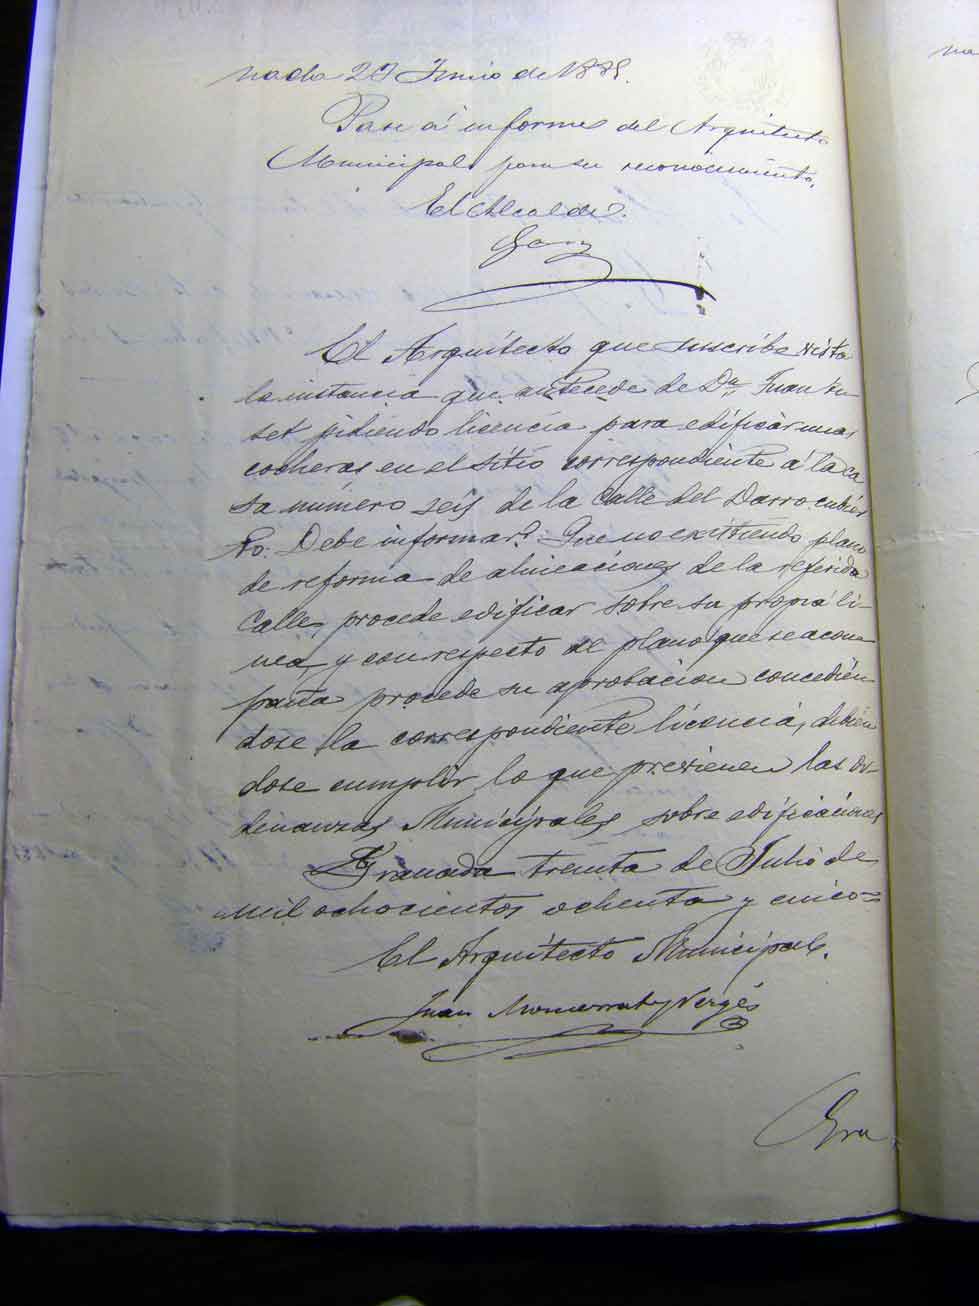 nada 27 Junio de 1885.
Pase á informes del Arquitecto
Municipal para su reconocimiento.
El Alcalde.
El Arquitecto que suscribe vista
la instancia que antecede de Dª Juan
set pidiendo licencia para edificar unas
cocheras en el sitio correspondiente á la ca
sa número seis de la Calle del Darro cubier
to. Debe informar: Que no existiendo plano
de reforma de alineaciones de la referida
Calle, procede edificar sobre su propia li-
nea, y con respecto al plano que se acom
paña procede su aprobacion concedién
dose la correspondiente licencia, debien
dose cumplir lo que previenen las or-
denanzas Municipales sobre edificaciones
Granada treinta de Julio de
mil ochocientos ochenta y cinco=
El Arquitecto Municipal.
Juan Monserrat y Vergés
Gra